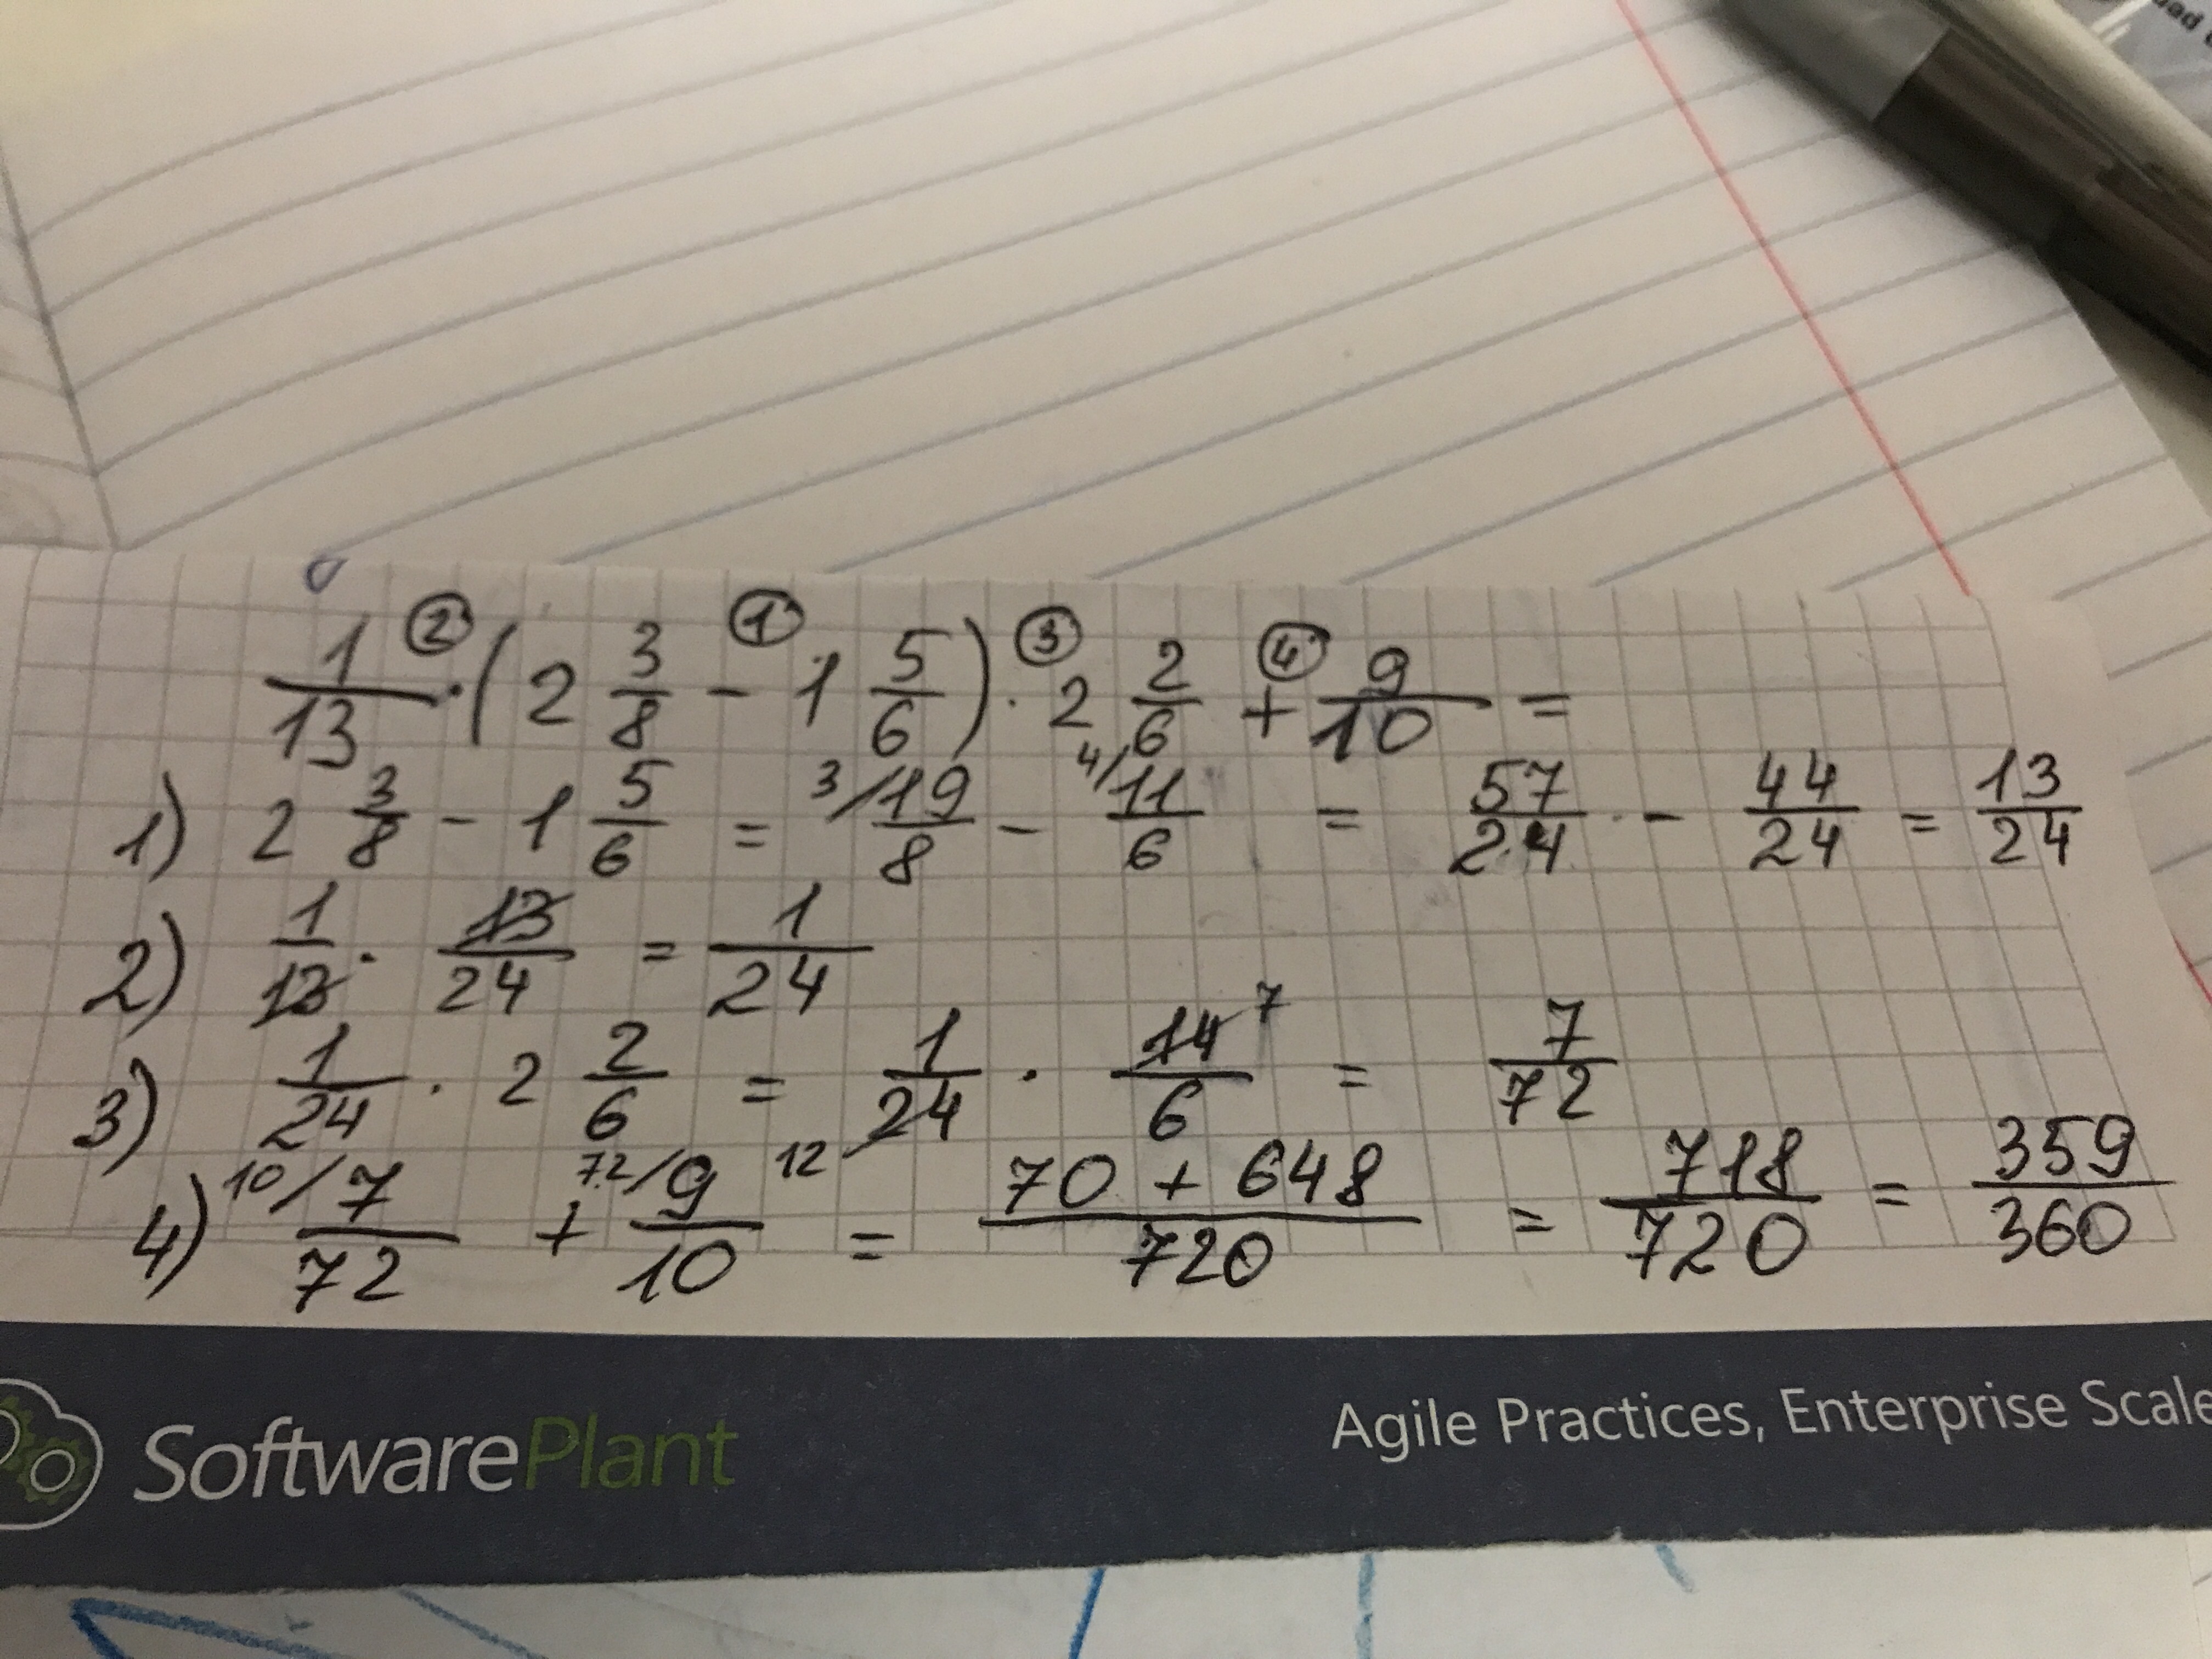 1/13 ② · (2 3/8 ① - 1 5/6) ③ · 2 2/6 ④ + 9/10 =
1) 2 3/8 - 1 5/6 = 3/ 19/8 - 4/ 11/6 = 57/24 - 44/24 = 13/24
2) 1/13 · 13/24 = 1/24
3) 1/24 · 2 2/6 = 1/24 12 · 14/6 7 = 7/72
4) 10/ 7/72 + 72/ 9/10 = 70 + 648/720 = 718/720 = 359/360
SoftwarePlant
Agile Practices, Enterprise Scale